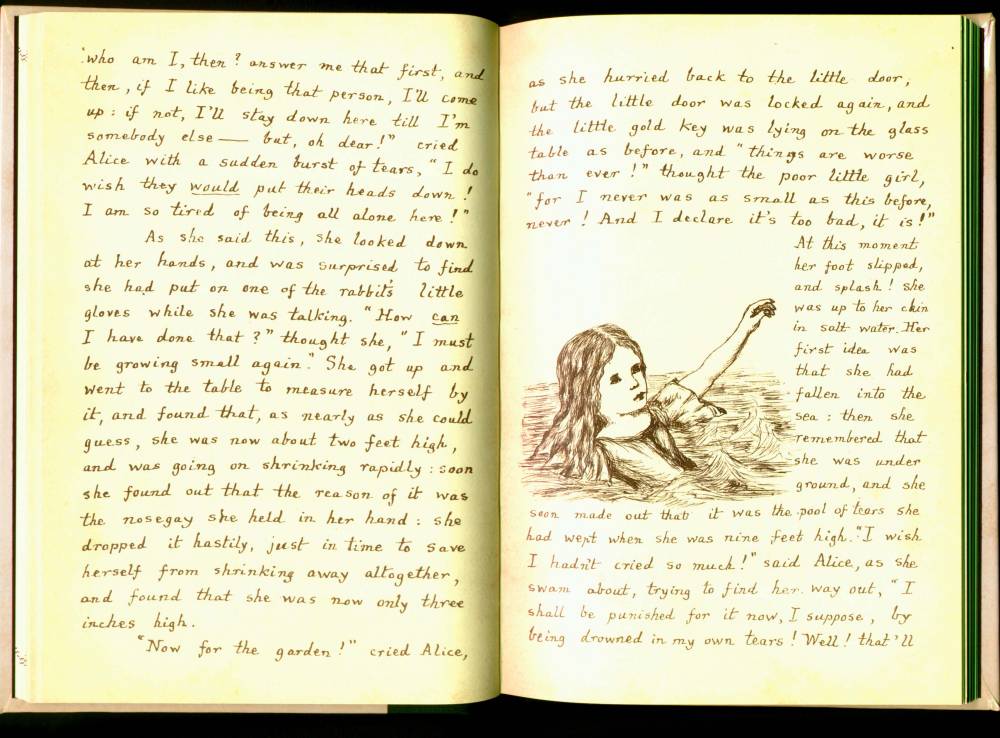 'who am I, then? answer me that first, and
then, if I like being that person, I'll come
up: if not, I'll stay down here till I'm
somebody else — but, oh dear!" cried
Alice with a sudden burst of tears, "I do
wish they would put their heads down!
I am so tired of being all alone here!"
As she said this, she looked down
at her hands, and was surprised to find
she had put on one of the rabbit's little
gloves while she was talking. "How can
I have done that?" thought she, "I must
be growing small again." She got up and
went to the table to measure herself by
it, and found that, as nearly as she could
guess, she was now about two feet high,
and was going on shrinking rapidly: soon
she found out that the reason of it was
the nosegay she held in her hand: she
dropped it hastily, just in time to save
herself from shrinking away altogether,
and found that she was now only three
inches high.
"Now for the garden!" cried Alice,
as she hurried back to the little door,
but the little door was locked again, and
the little gold key was lying on the glass
table as before, and "things are worse
than ever!" thought the poor little girl,
"for I never was as small as this before,
never! And I declare it's too bad, it is!"
At this moment
her foot slipped,
and splash! she
was up to her chin
in salt water. Her
first idea was
that she had
fallen into the
sea: then she
remembered that
she was under
ground, and she
soon made out that it was the pool of tears she
had wept when she was nine feet high. "I wish
I hadn't cried so much!" said Alice, as she
swam about, trying to find her way out, "I
shall be punished for it now, I suppose, by
being drowned in my own tears! Well! that'll